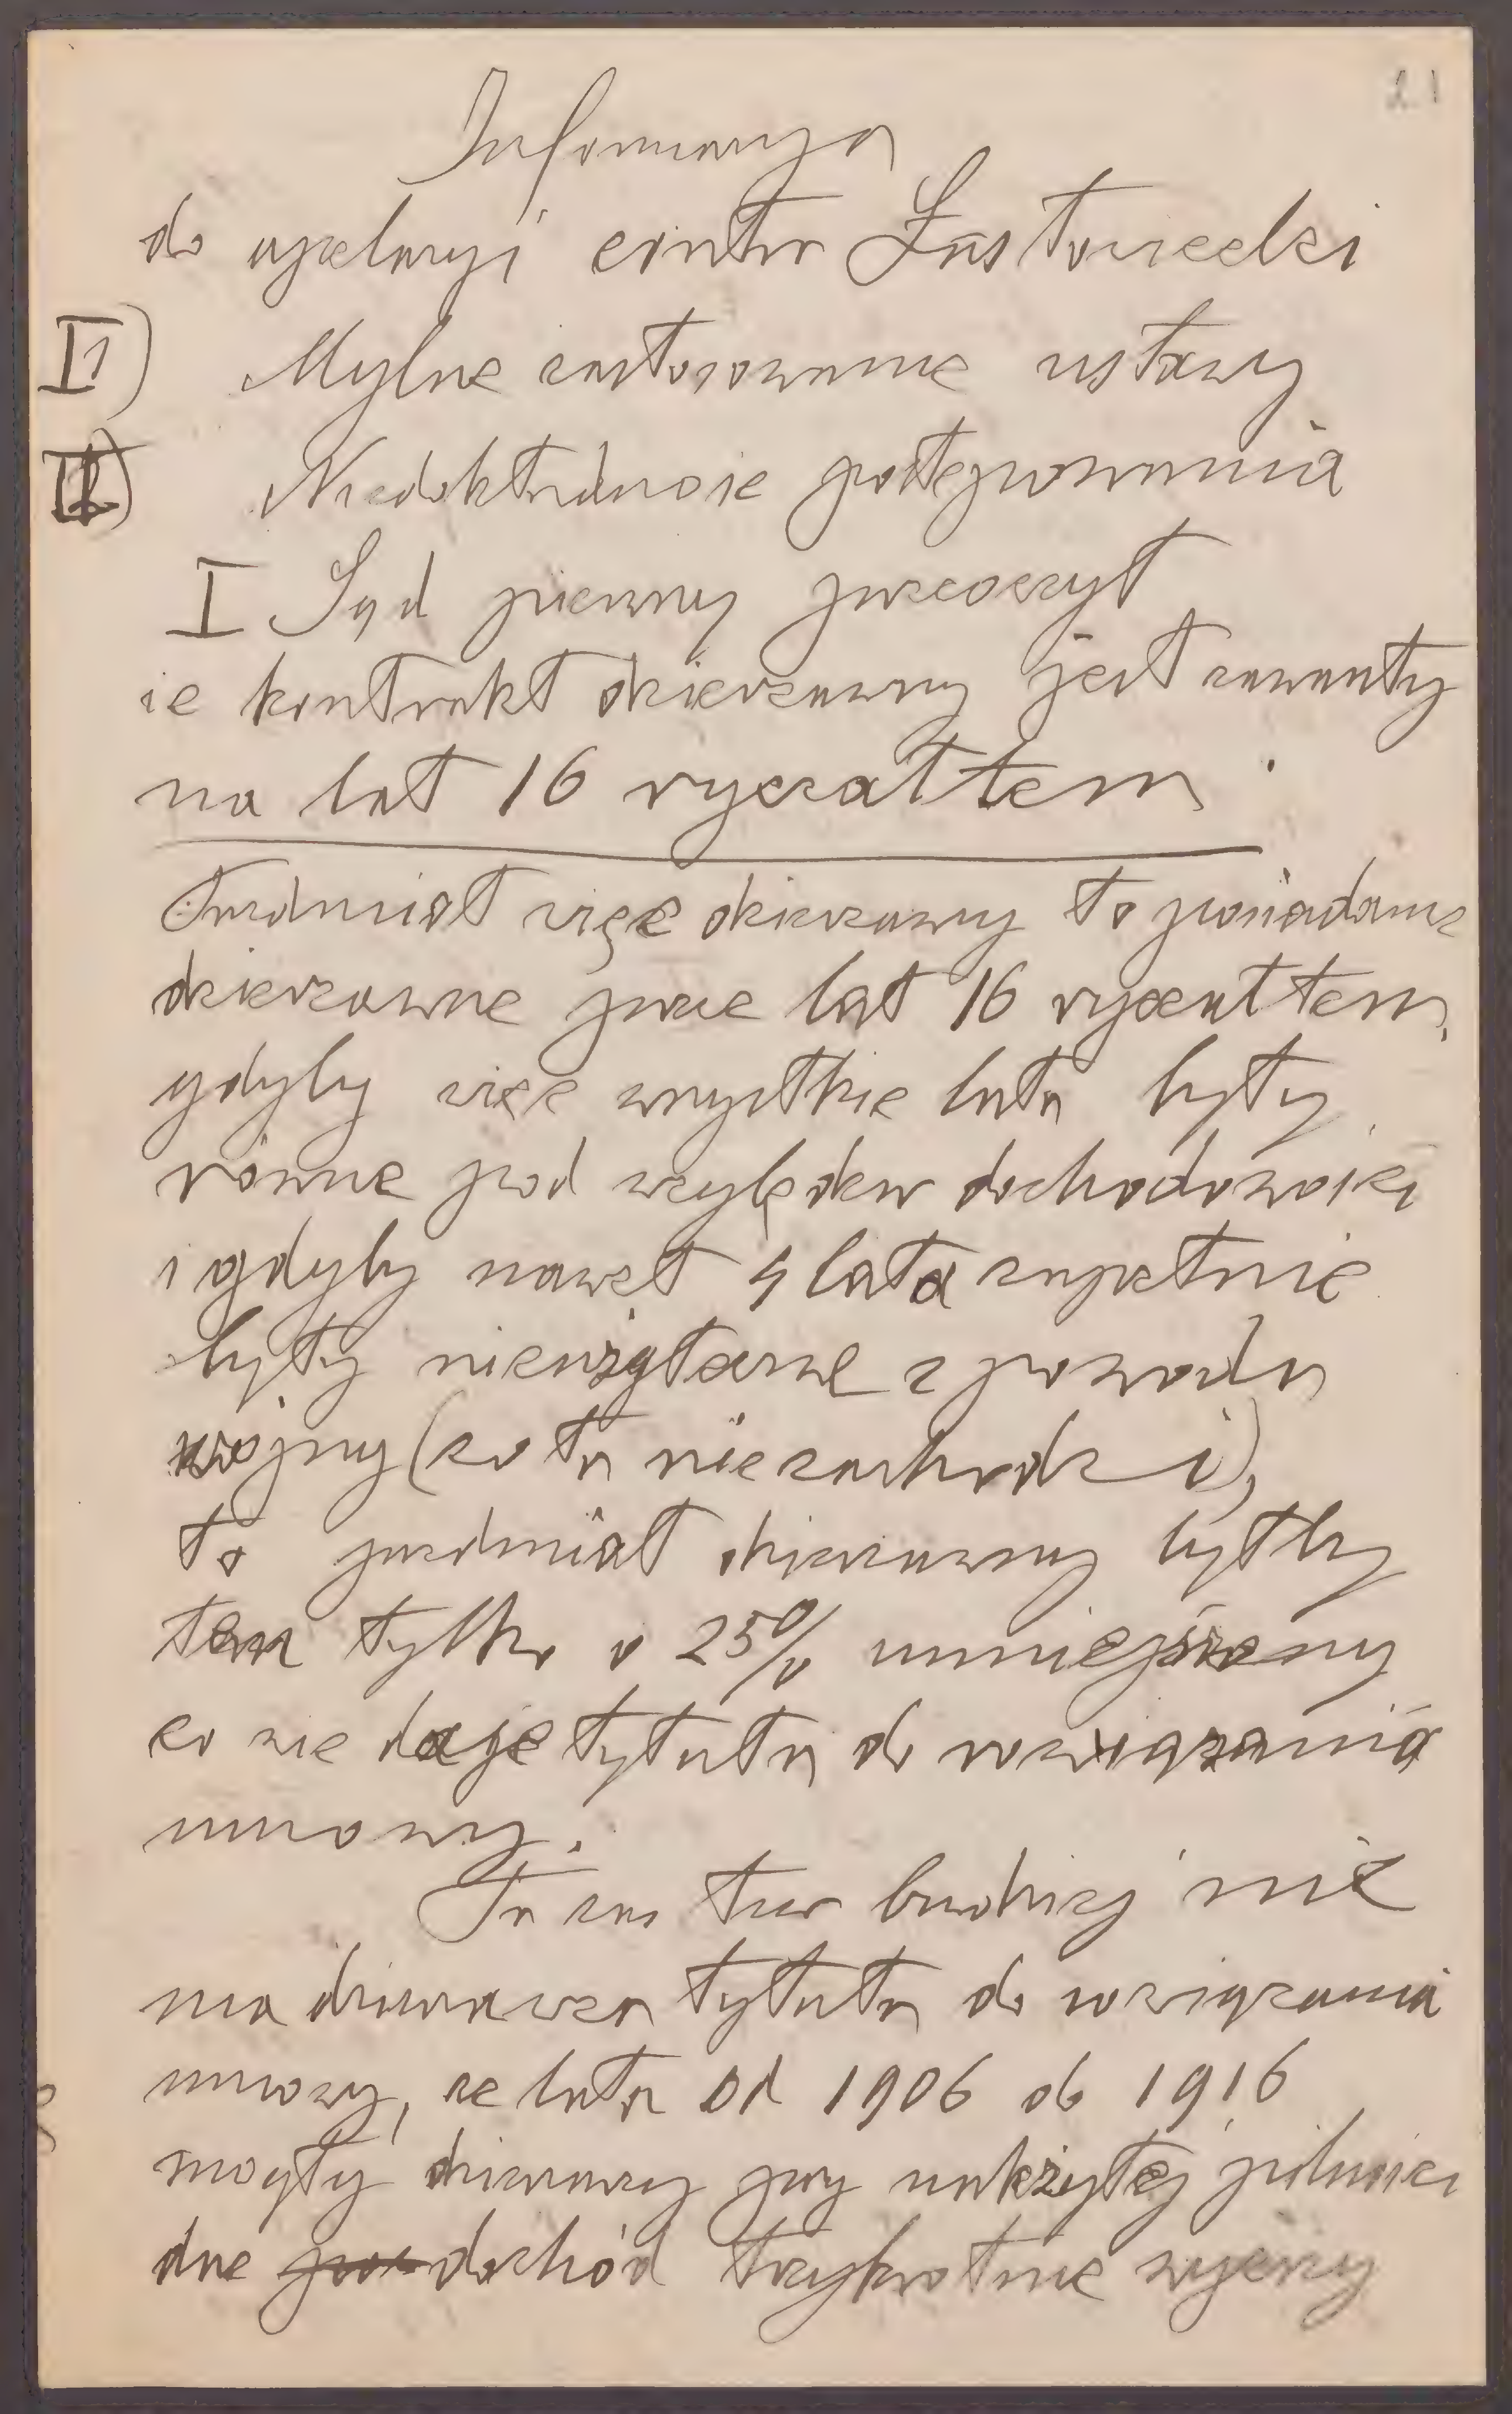 21
Informacya
do apelacyi contra Łastowiecki
I1) Mylne zastosowanie ustawy
II) Niedokładność postępowania
I Sąd pierwszy przeoczył
że kontrakt dzierżawny jest zawarty
na lat 16 ryczałtem.
Przedmiot więc dzierżawy to posiadanie
dzierżawne przez lat 16 ryczałtem,
gdyby więc wszystkie lata były
równe pod względem dochodowości
i gdyby nawet 4 lata zupełnie
były nieużyteczne z powodu
wojny (co tu nie zachodzi),
to przedmiot dzierżawny byłby
ten tylko o 25% umniejszony
co nie daje tytułu do rozwiązania
umowy.
Tu zaś tem bardziej nie
ma dzierżawca tytułu do rozwiązania
umowy, że lata od 1906 do 1916
mogły dzierżawcy przy należytej pilności
dać dochód trzykrotnie wyższy